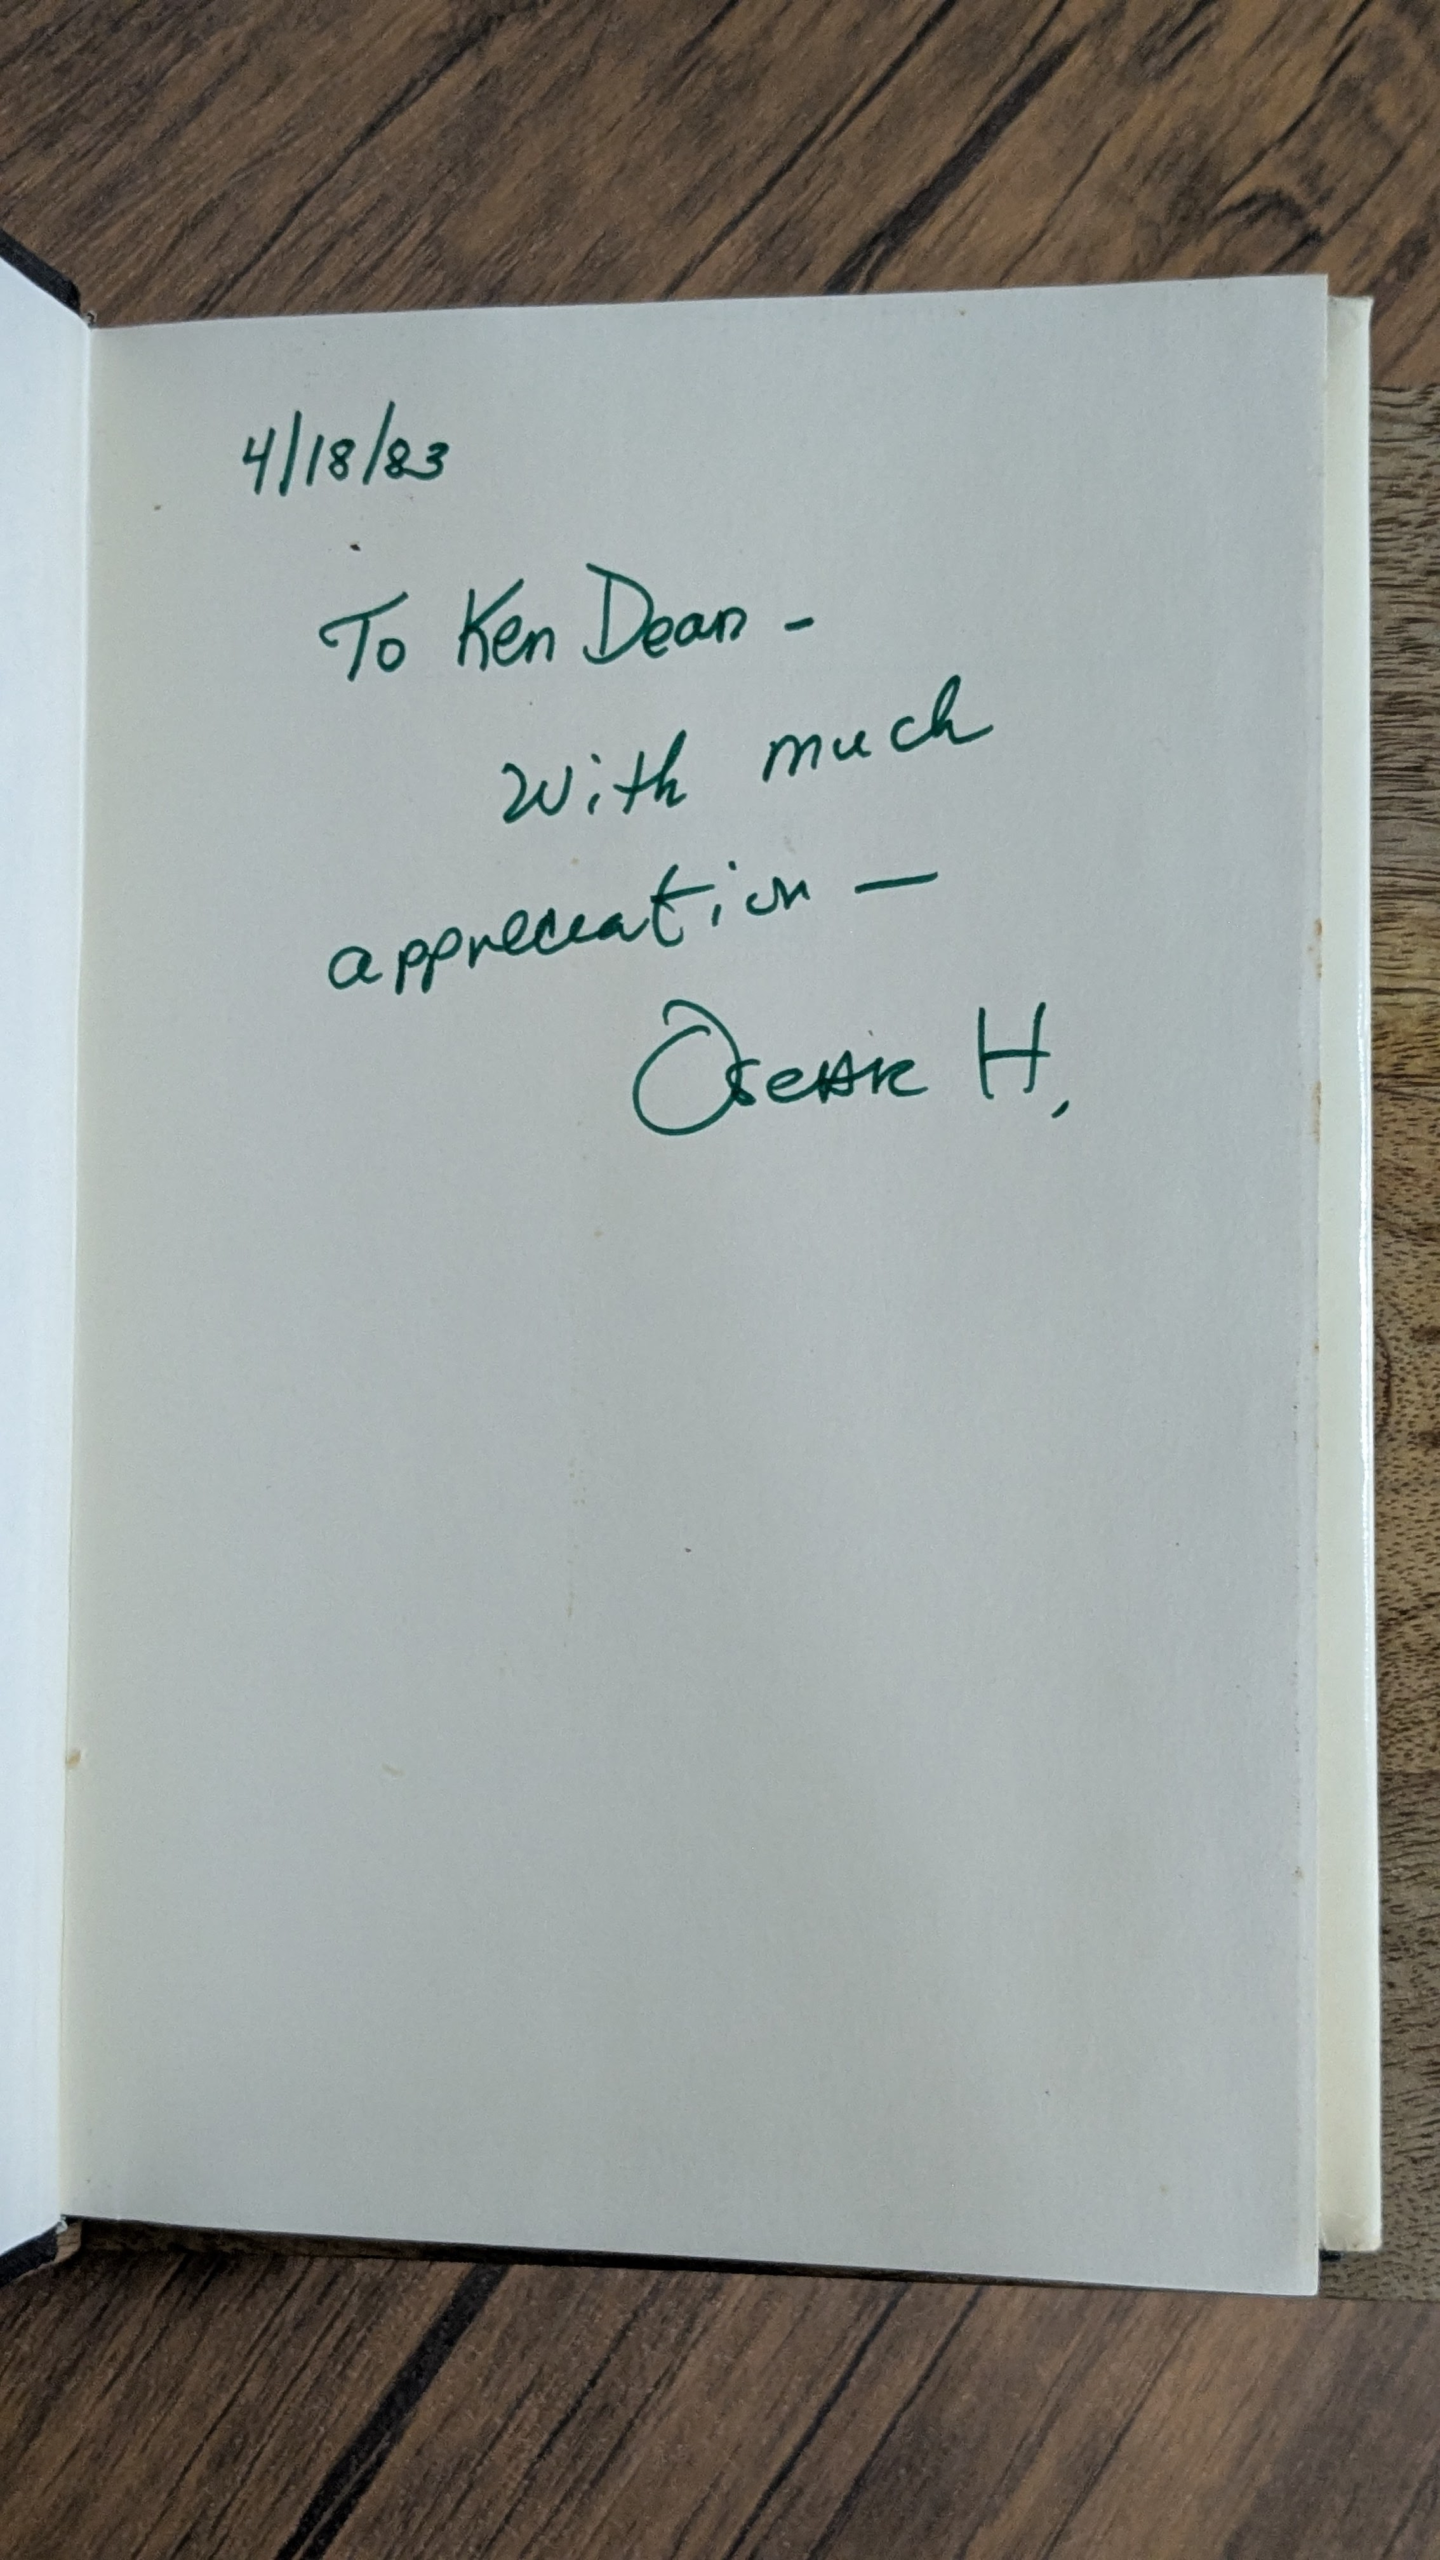 4/18/83
To Ken Dean -
With much
appreciation —
Oscar H.